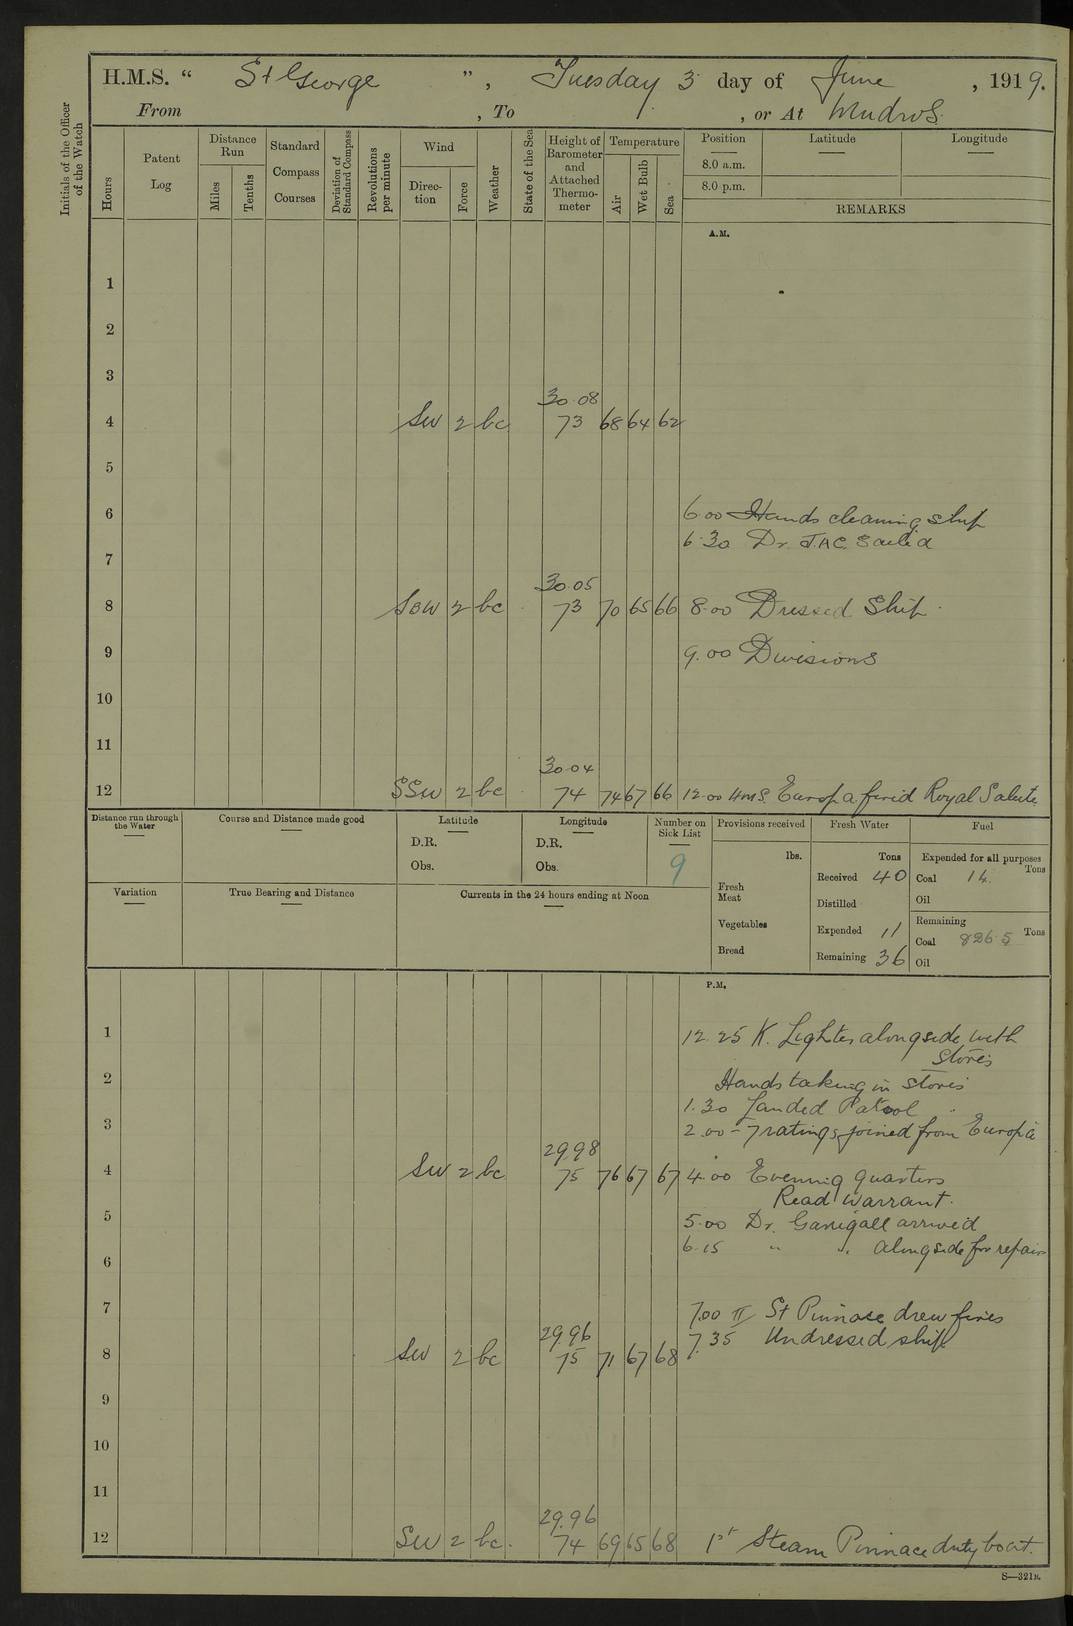 H.M.S. “ St George ”, Tuesday 3 day of June, 1919.
From , To , or At Mudros.
Initials of the Officer of the Watch
Hours
Patent Log
Distance Run
Miles
Tenths
Standard Compass Courses
Deviation of Standard Compass
Revolutions per minute
Wind
Direction
Force
Weather
State of the Sea
Height of Barometer and Attached Thermometer
Temperature
Air
Wet Bulb
Sea
Position
Latitude
Longitude
8.0 a.m.
8.0 p.m.
REMARKS
A.M.
1
2
3
30.08
4 SW 2 bc 73 68 64 62
5
6 6.00 Hands cleaning ship
6.30 Dr. J.A.C. Sailed
7
30.05
8 SBW 2 bc 73 70 65 66 8.00 Dressed Ship.
9 9.00 Divisions
10
11
30.04
12 SSW 2 bc 74 74 67 66 12.00 H.M.S. Europa fired Royal Salute
Distance run through the Water
Course and Distance made good
Latitude
D.R.
Obs.
Longitude
D.R.
Obs.
Number on Sick List
9
Provisions received
lbs.
Fresh Meat
Vegetables
Bread
Fresh Water
Tons
Received 40
Distilled
Expended 11
Remaining 36
Fuel
Expended for all purposes
Coal 14 Tons
Oil
Remaining
Coal 826.5 Tons
Oil
Variation
True Bearing and Distance
Currents in the 24 hours ending at Noon
P.M.
1 12.25 K. Lighter alongside with
Stores
2 Hands taking in stores
1.30 Landed Patrol
3 2.00 – 7 ratings joined from Europa
29.98
4 SW 2 bc 75 76 67 67 4.00 Evening Quarters
Read Warrant.
5 5.00 Dr. arrived
6.15 " " alongside for repairs
6
7 7.00 II St Pinnace drew fires
29.96 7.35 Undressed ship
8 SW 2 bc 75 71 67 68
9
10
11
29.96
12 SW 2 bc. 74 69 65 68 1st Steam Pinnace duty boat.
S—321B.